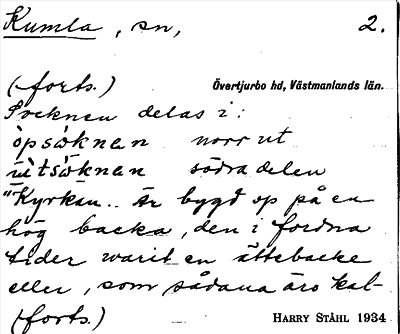 Kumla, sn, 2.
(forts.) Övertjurbo hd, Västmanlands län.
Socknen delas i:
òpsòknan norr ut
ùtsòknan södra delen
"Kyrkan.. Är bygd op på en
hög backa, den i fordna
tider warit en ättebacke
eller, som sådana äro kal-
(forts.) HARRY STÅHL 1934